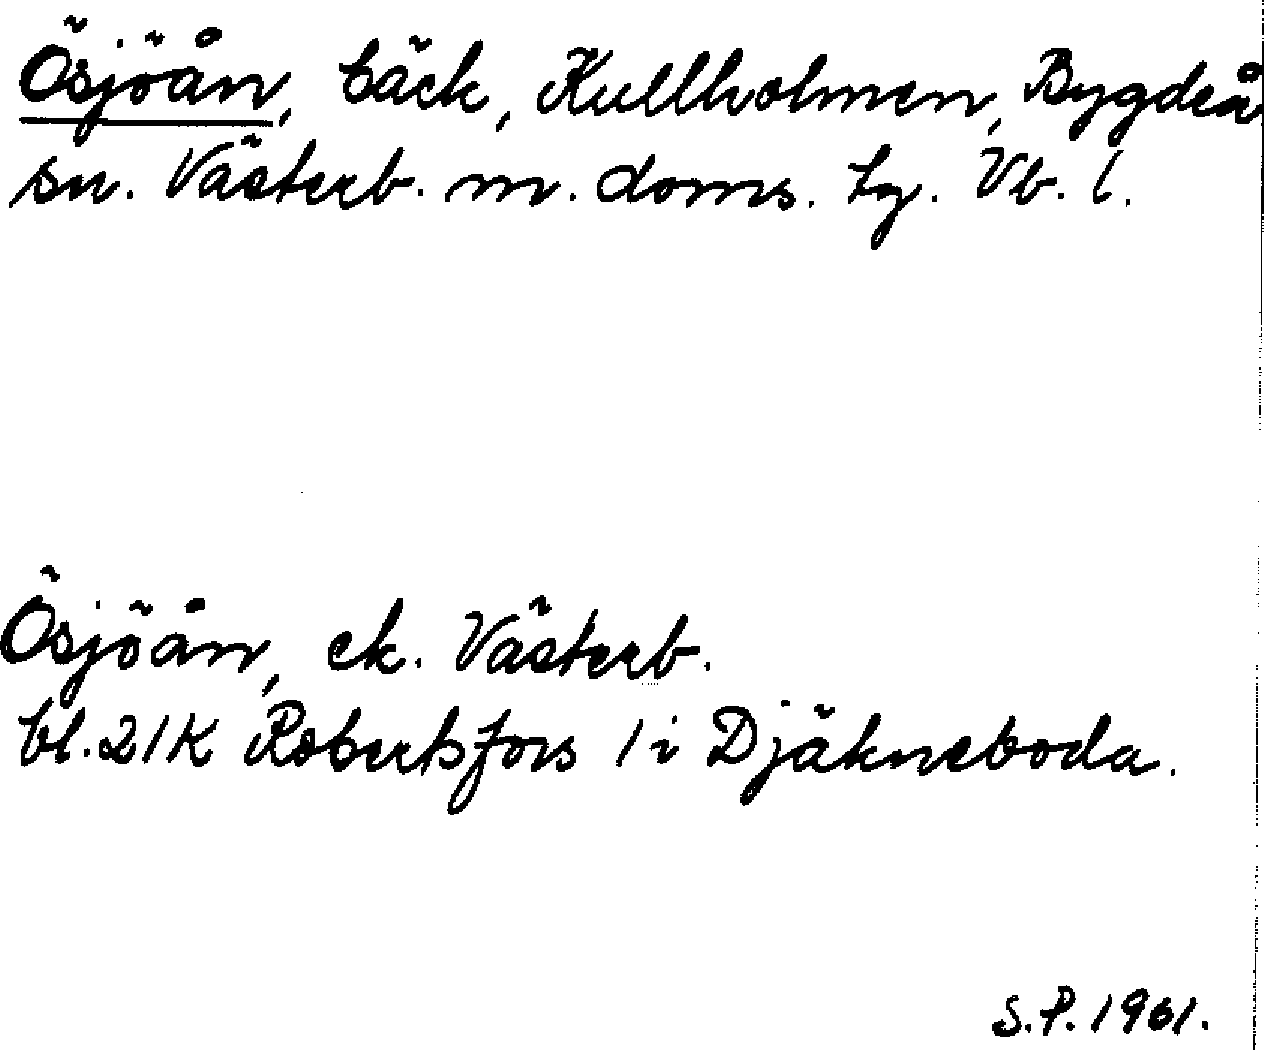 Ösjöån, bäck, Kullholmen, Bygdeå
sn. Västerb. m. doms. tg. Vb. l.
Ösjöån, ek. Västerb.
bl. 21K Robertsfors 1 i Djäkneboda.
S.P. 1961.